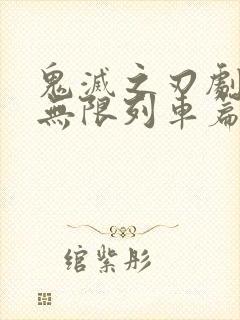 鬼滅之刃劇
無限列車篇
綰紫彤